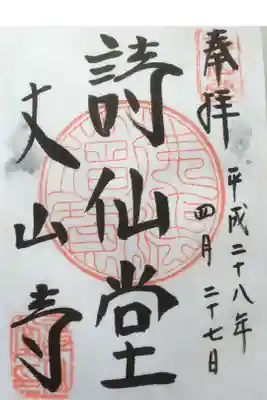 奉拝
平成二十八年
四月二十七日
詩仙堂
丈山寺